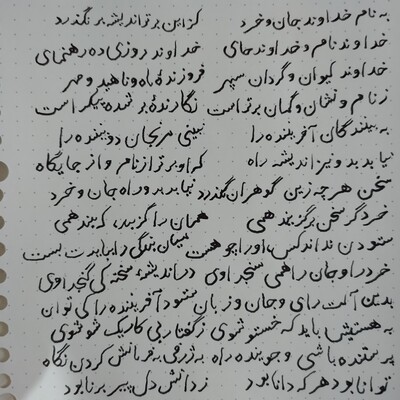 به نام خداوند جان و خرد کزین برتر اندیشه برنگذرد
خداوند نام و خداوند جای خداوند روزی ده رهنمای
خداوند کیوان و گردان سپهر فروزندهٔ ماه و ناهید و مهر
ز نام و نشان و گمان برتر است نگارندهٔ بر شده پیکر است
به بینندگان آفریننده را نبینی مرنجان دو بیننده را
نیابد بدو نیز اندیشه راه که او برتر از نام و از جایگاه
سخن هر چه زین گوهران بگذرد نیابد بدو راه جان و خرد
خرد گر سخن برگزیند همی همان را گزیند، که بیند همی
ستودن نداند کس، او را چو هست میان بندگی را ببایدت بست
خرد را و جان را همی سنجد اوی در اندیشهٔ سخته کی گنجد اوی
بدین آلت رای و جان و زبان ستود آفریننده را کی توان
به هستیش باید که خستو شوی ز گفتار بی کار یک سو شوی
پرستنده باشی و جوینده راه به ژرفی به فرمانش کردن نگاه
توانا بود هر که دانا بود ز دانش دل پیر برنا بود